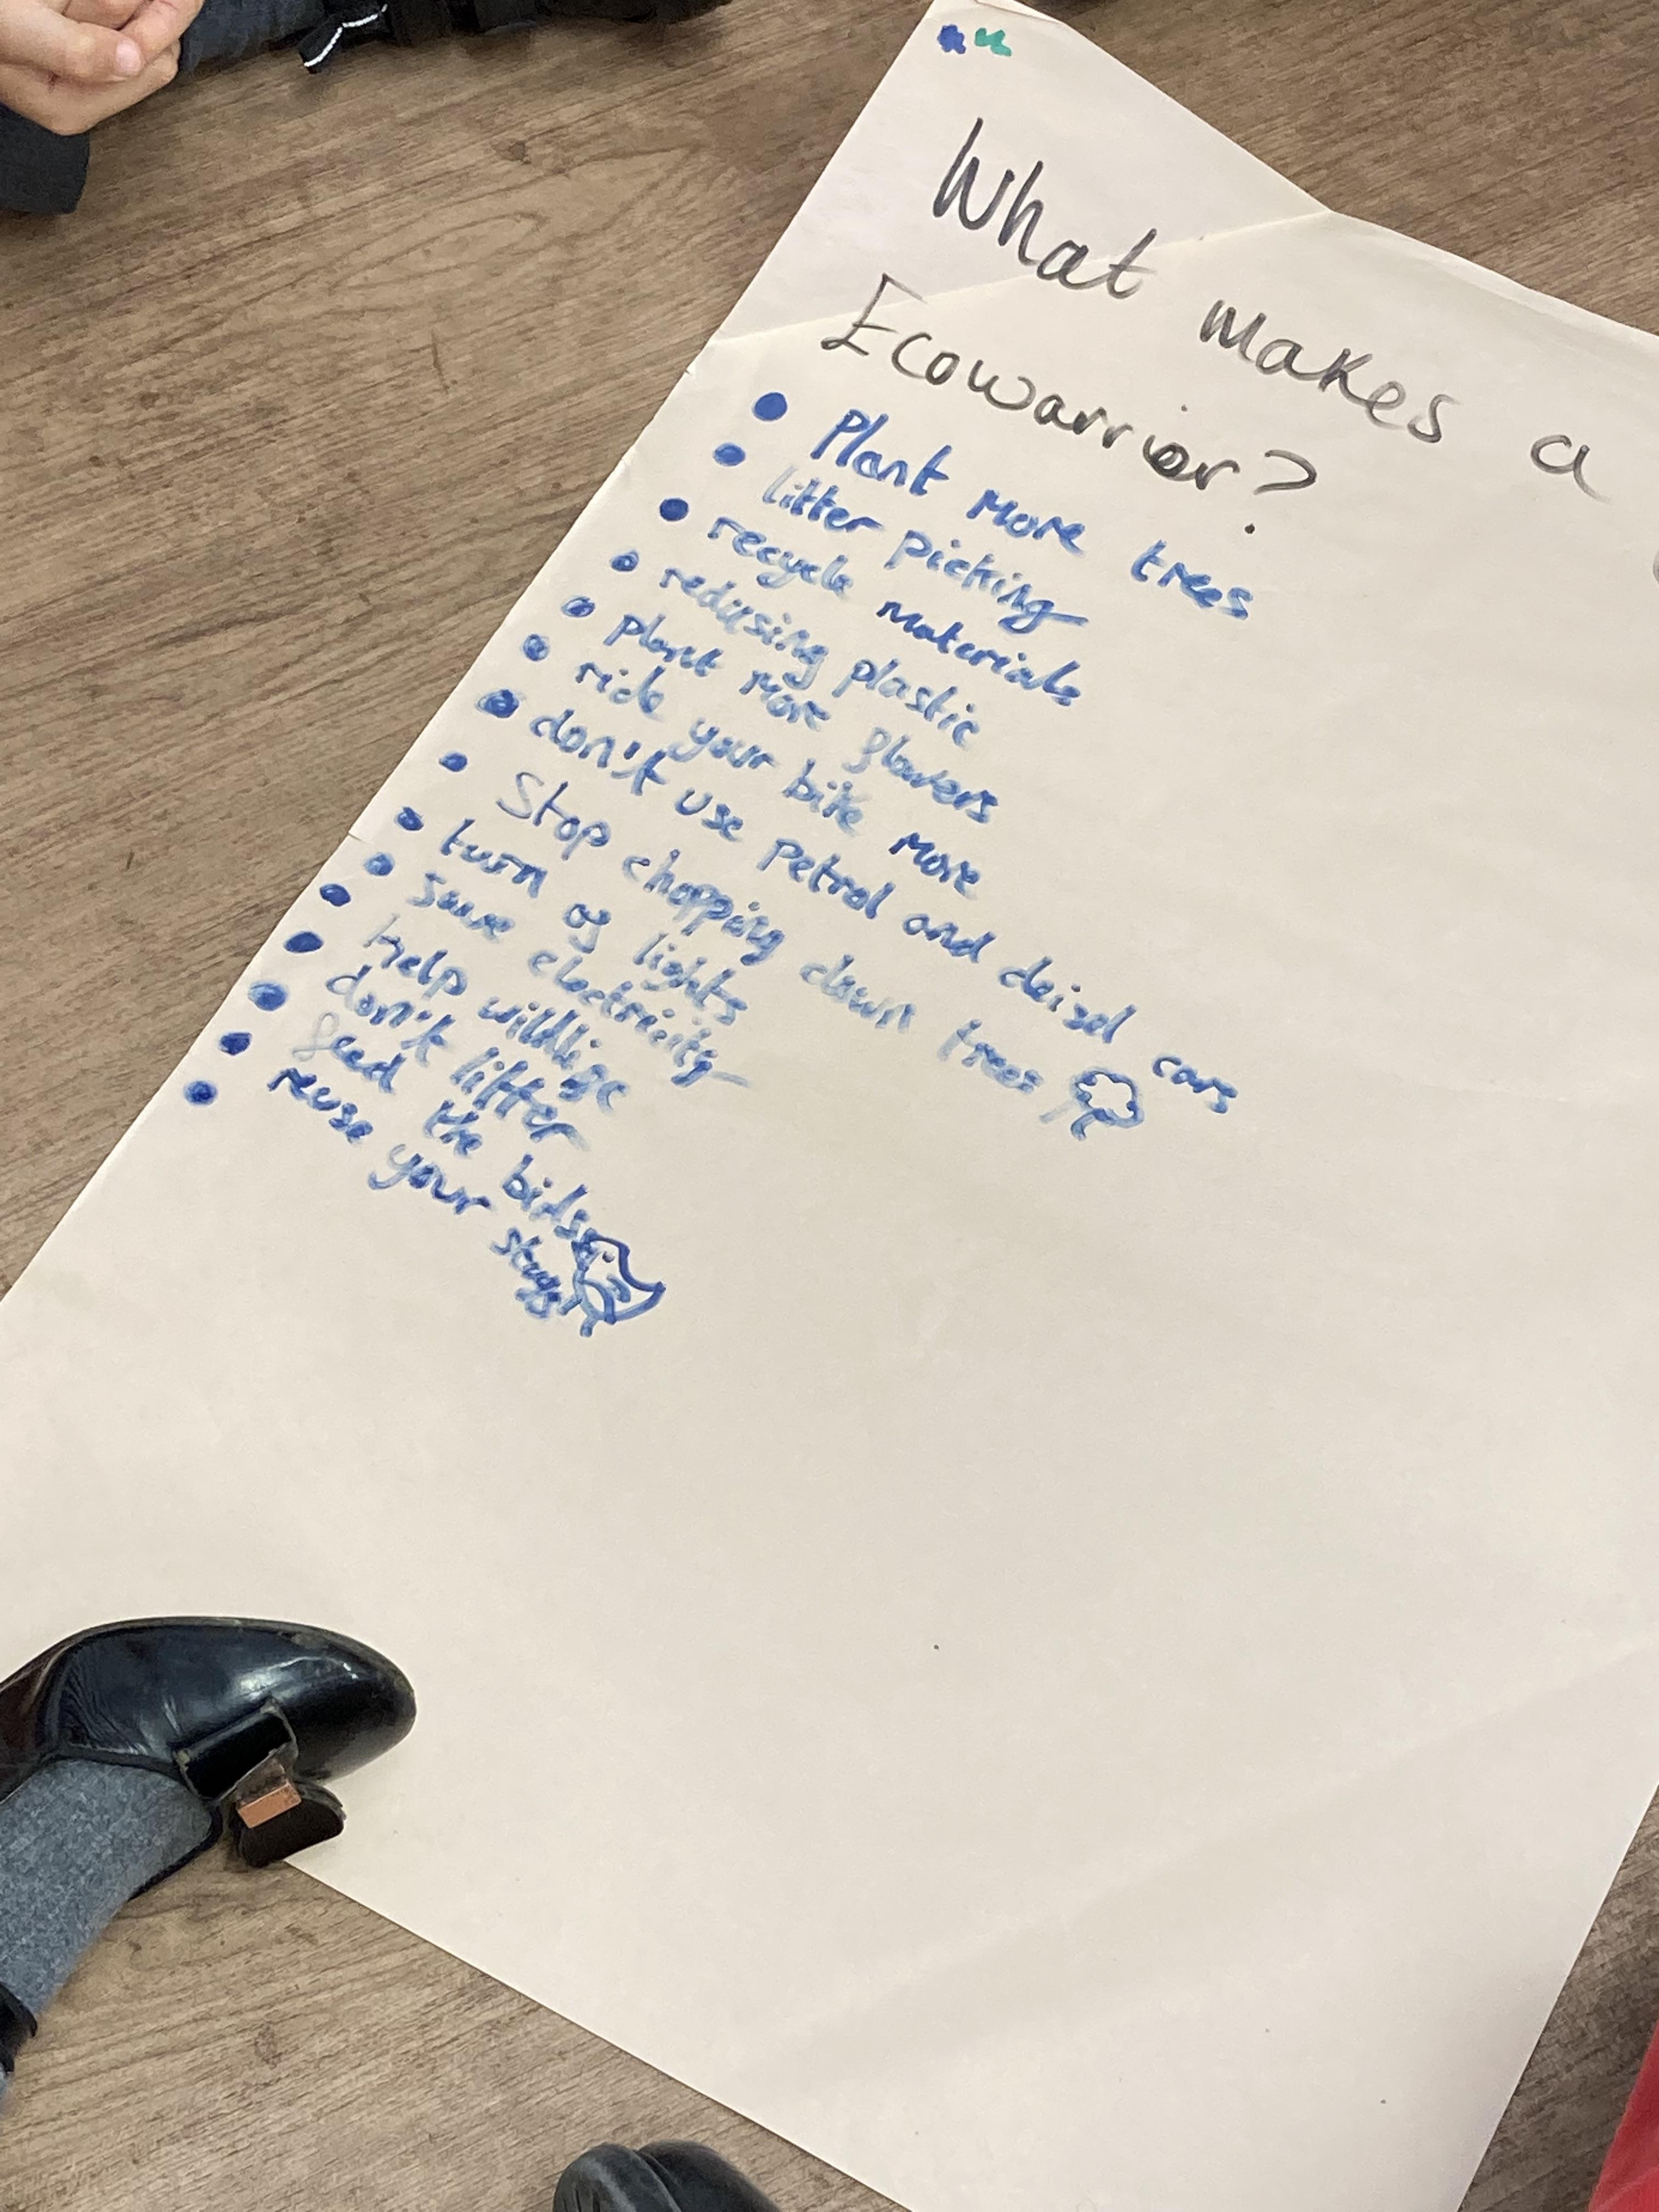 What makes a
Ecowarrior?
Plant more trees
litter picking
recycle materials
redusing plastic
plant more flowers
ride your bike more
don't use petrol and deisel cars
Stop chopping down trees
turn of lights
save electricity
help wildlife
don't litter
feed the bids
reuse your stuff